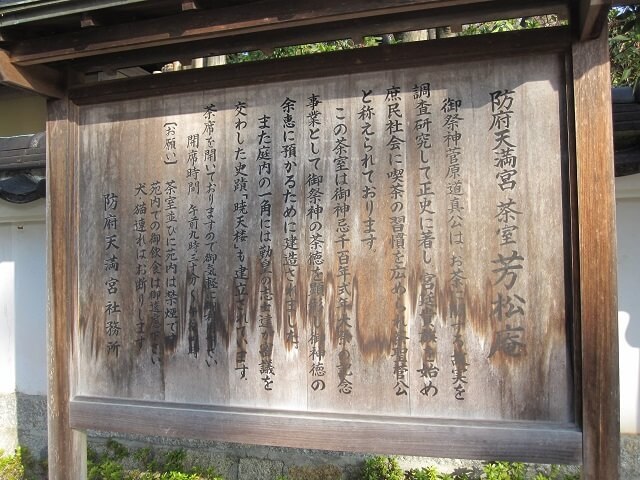 防府天満宮 茶室 芳松庵
御祭神菅原道真公は、お茶に関する事実を
調査研究して正史に著し、宮廷貴族を始め
庶民社会に喫茶の習慣を広められ茶聖菅公
と称えられております。
この茶室は御神忌千百年式年大祭の記念
事業として御祭神の茶徳を顕彰し御神徳の
余恵に預かるために建造されました。
また庭内の一角には勤皇の志士達が密議を
交わした史蹟「暁天楼」も建立されています。
茶席を開いておりますので御気軽に
開席時間 午前九時三十分
〔お願い〕 茶室並びに苑内は禁煙です
苑内での御飲食は御遠慮下さい
犬、猫連れはお断りします
防府天満宮社務所